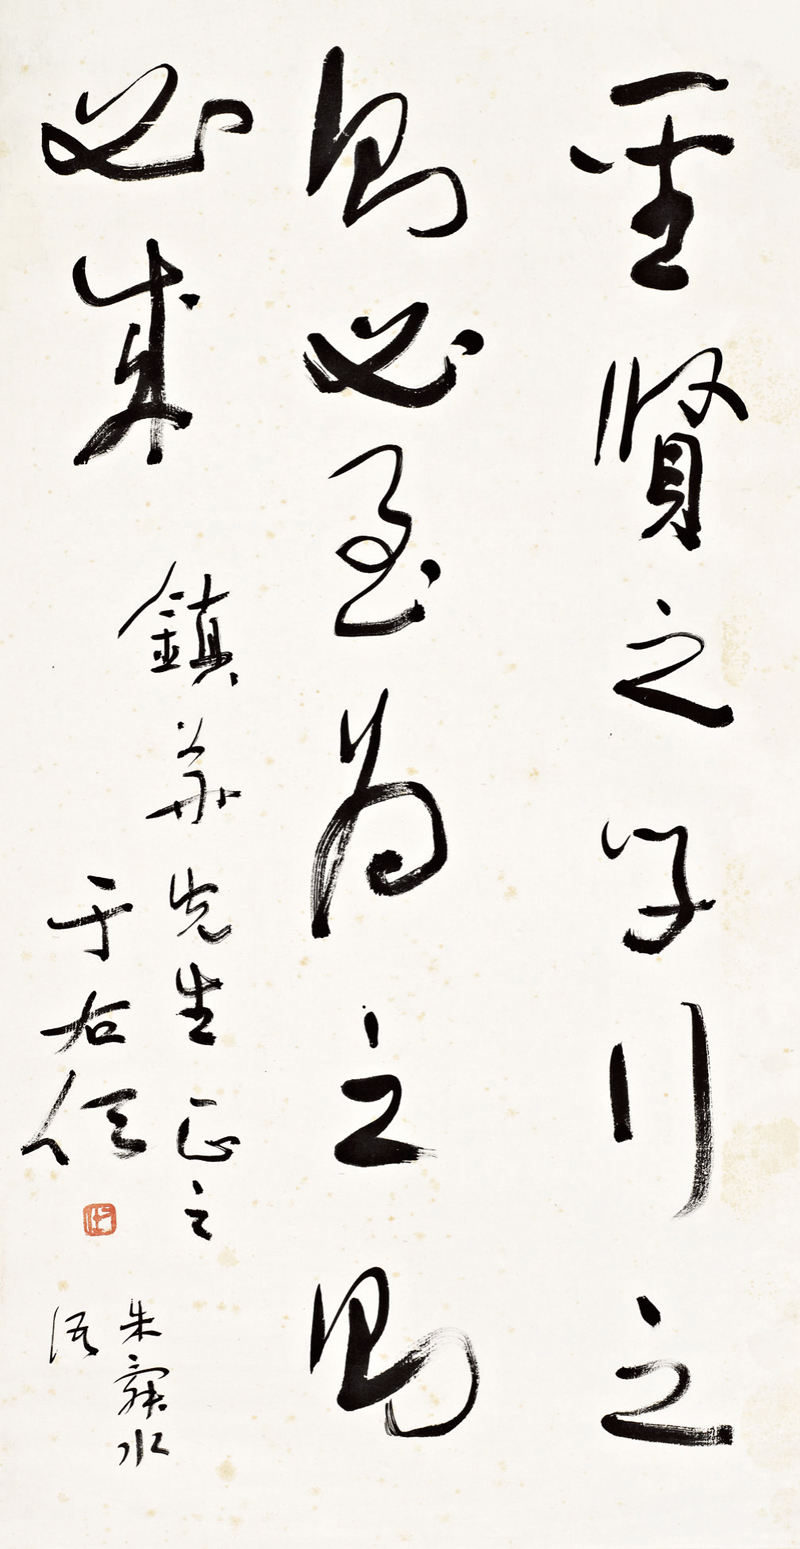 聖賢之學行之
則必至為之則
必成
鎮先生正之
于右任
朱舜水
語